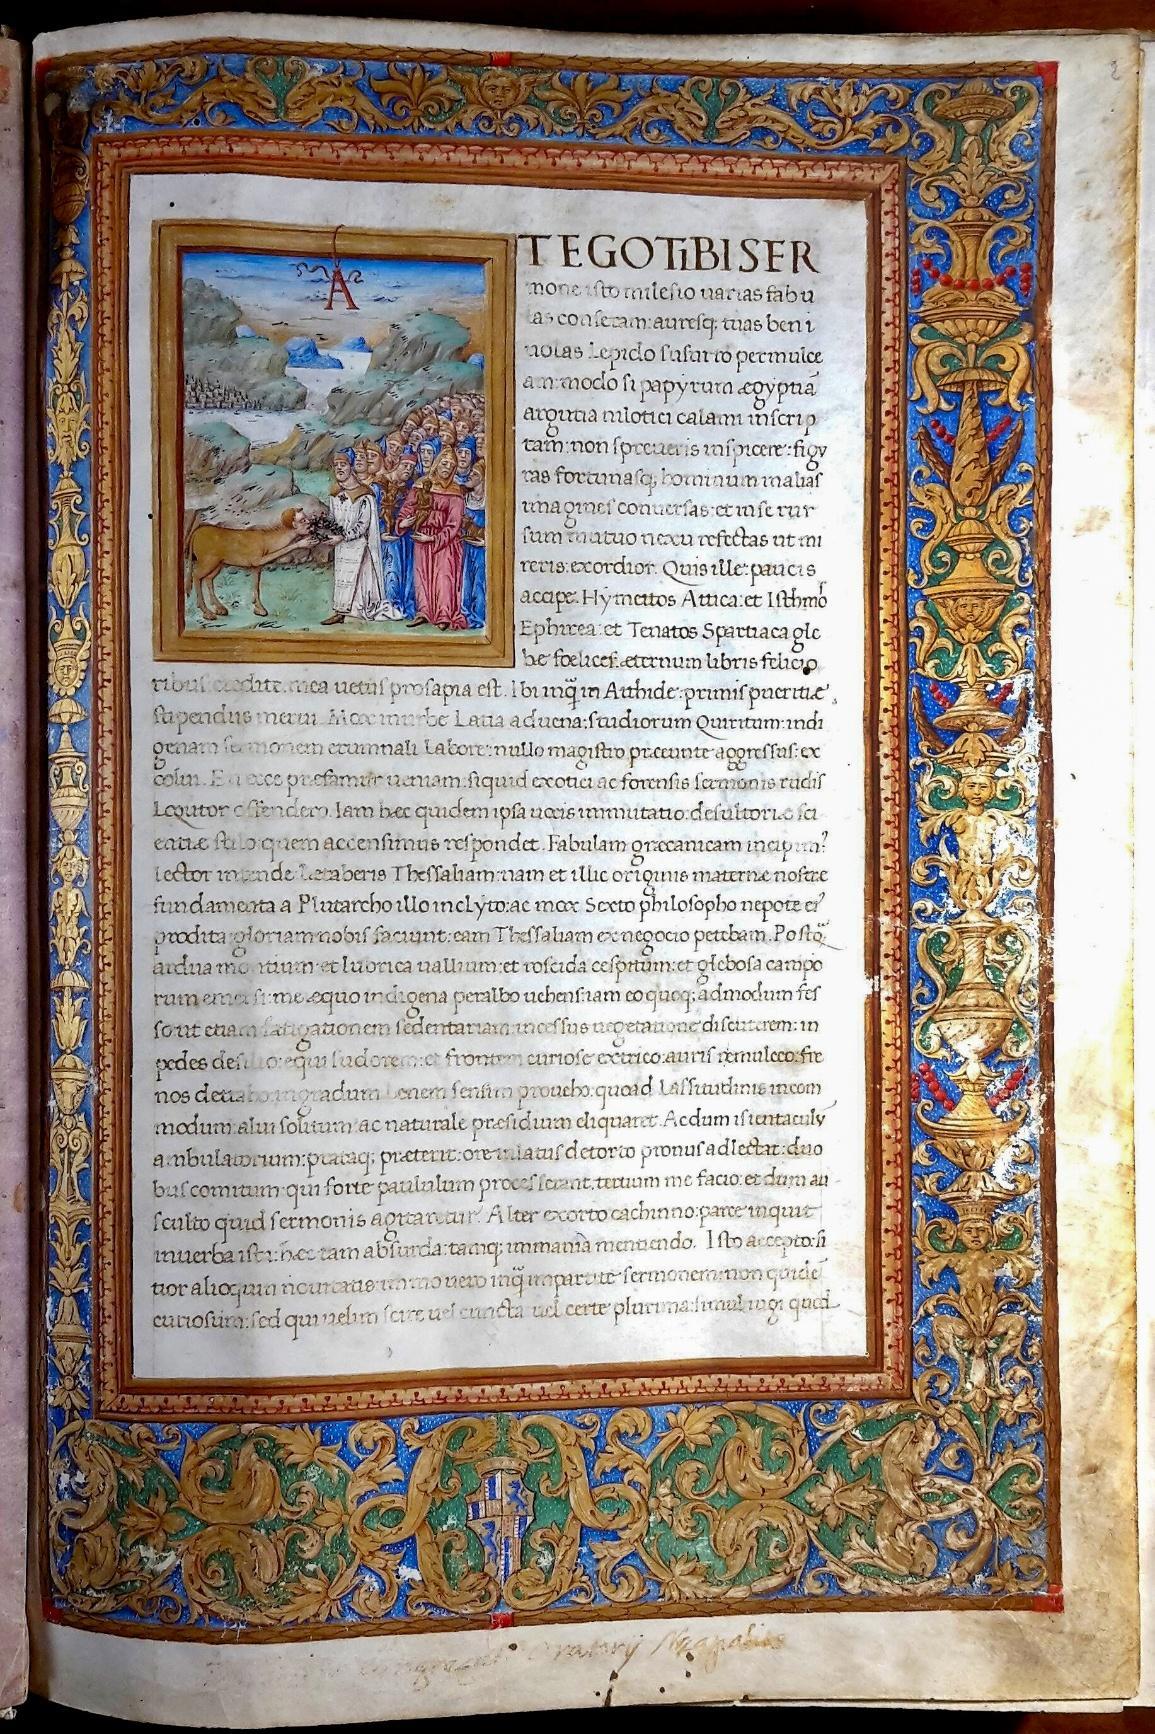 2
A
T EGO TIBI SER
mone isto milesio uarias fabu
las conseram: auresq; tuas beni
uolas Lepido susurro permulce
am: modo si papyrum ægyptiā
argutia nilotici calami inscrip
tam: non spreueris inspicere: figu
ras fortunasq; hominum in alias
imagines conuersas: et in se rur
sum mutuo nexu refectas ut mi
reris: exordior. Quis ille: paucis
accipe. Hymettos Attica: et Isthmo
Ephirea: et Tenatos Spartiaca gle
be fœlices: æternum libris felicio
ribus credite. mea uetus prosapia est. Ibi inq̄ in Atthide: primis pueritiæ
stipendiis merui. Mox in urbe Latia aduena: studiorum Quiritum: indi
genam sermonem erumnali Labore: nullo magistro præeunte aggressus: ex
colui. En ecce præfamur ueniam: siquid exotici ac forensis sermonis rudis
Loqutor offendero. Iam hæc quidem ipsa uocis immutatio: desultoriæ sci
entiæ stilo: quem accensimus respondet. Fabulam græcanicam incipim⁹
Lector intende: Letaberis Thessaliam: nam et illic originis maternæ nostræ
fundamenta a Plutarcho illo inclyto: ac mox Sexto philosopho nepote ei⁹
prodita gloriam nobis faciunt: eam Thessaliam ex negocio petebam. Postq̄
ardua montium: et lubrica uallium: et roscida cespitum: et glebosa campo
rum emersi: me equo indigena peralbo uehens: iam eo quoq; admodum fes
so: ut etiam fatigationem sedentariam: incessus uegetatione discuterem: in
pedes desilio: equi sudorem: et frontem curiose extrico: auris remulceo: fre
nos detraho: in gradum Lenem sensim proueho: quoad Lassitudinis incom
modum: alui solitum: ac naturale præsidium eliquaret. Ac dum is ientaculū
ambulatorium: prataq; præterit: ore in latus detorto pronus adfectat: duo
bus comitum: qui forte paululum processerant. tertium me facio: et dum au
sculto quid sermonis agitaretur. Alter exorto cachinno: parce inquit
in uerba isti: hæc tam absurda: tamq; immania mentiendo. Isto accepto: si
tior alioquin nouitatis: immo uero inq̄ impartite sermonem: non quidē
curiosum: sed qui uelim scire uel cuncta uel certe plurima: simul iugi quod
Oratorij Neapolis